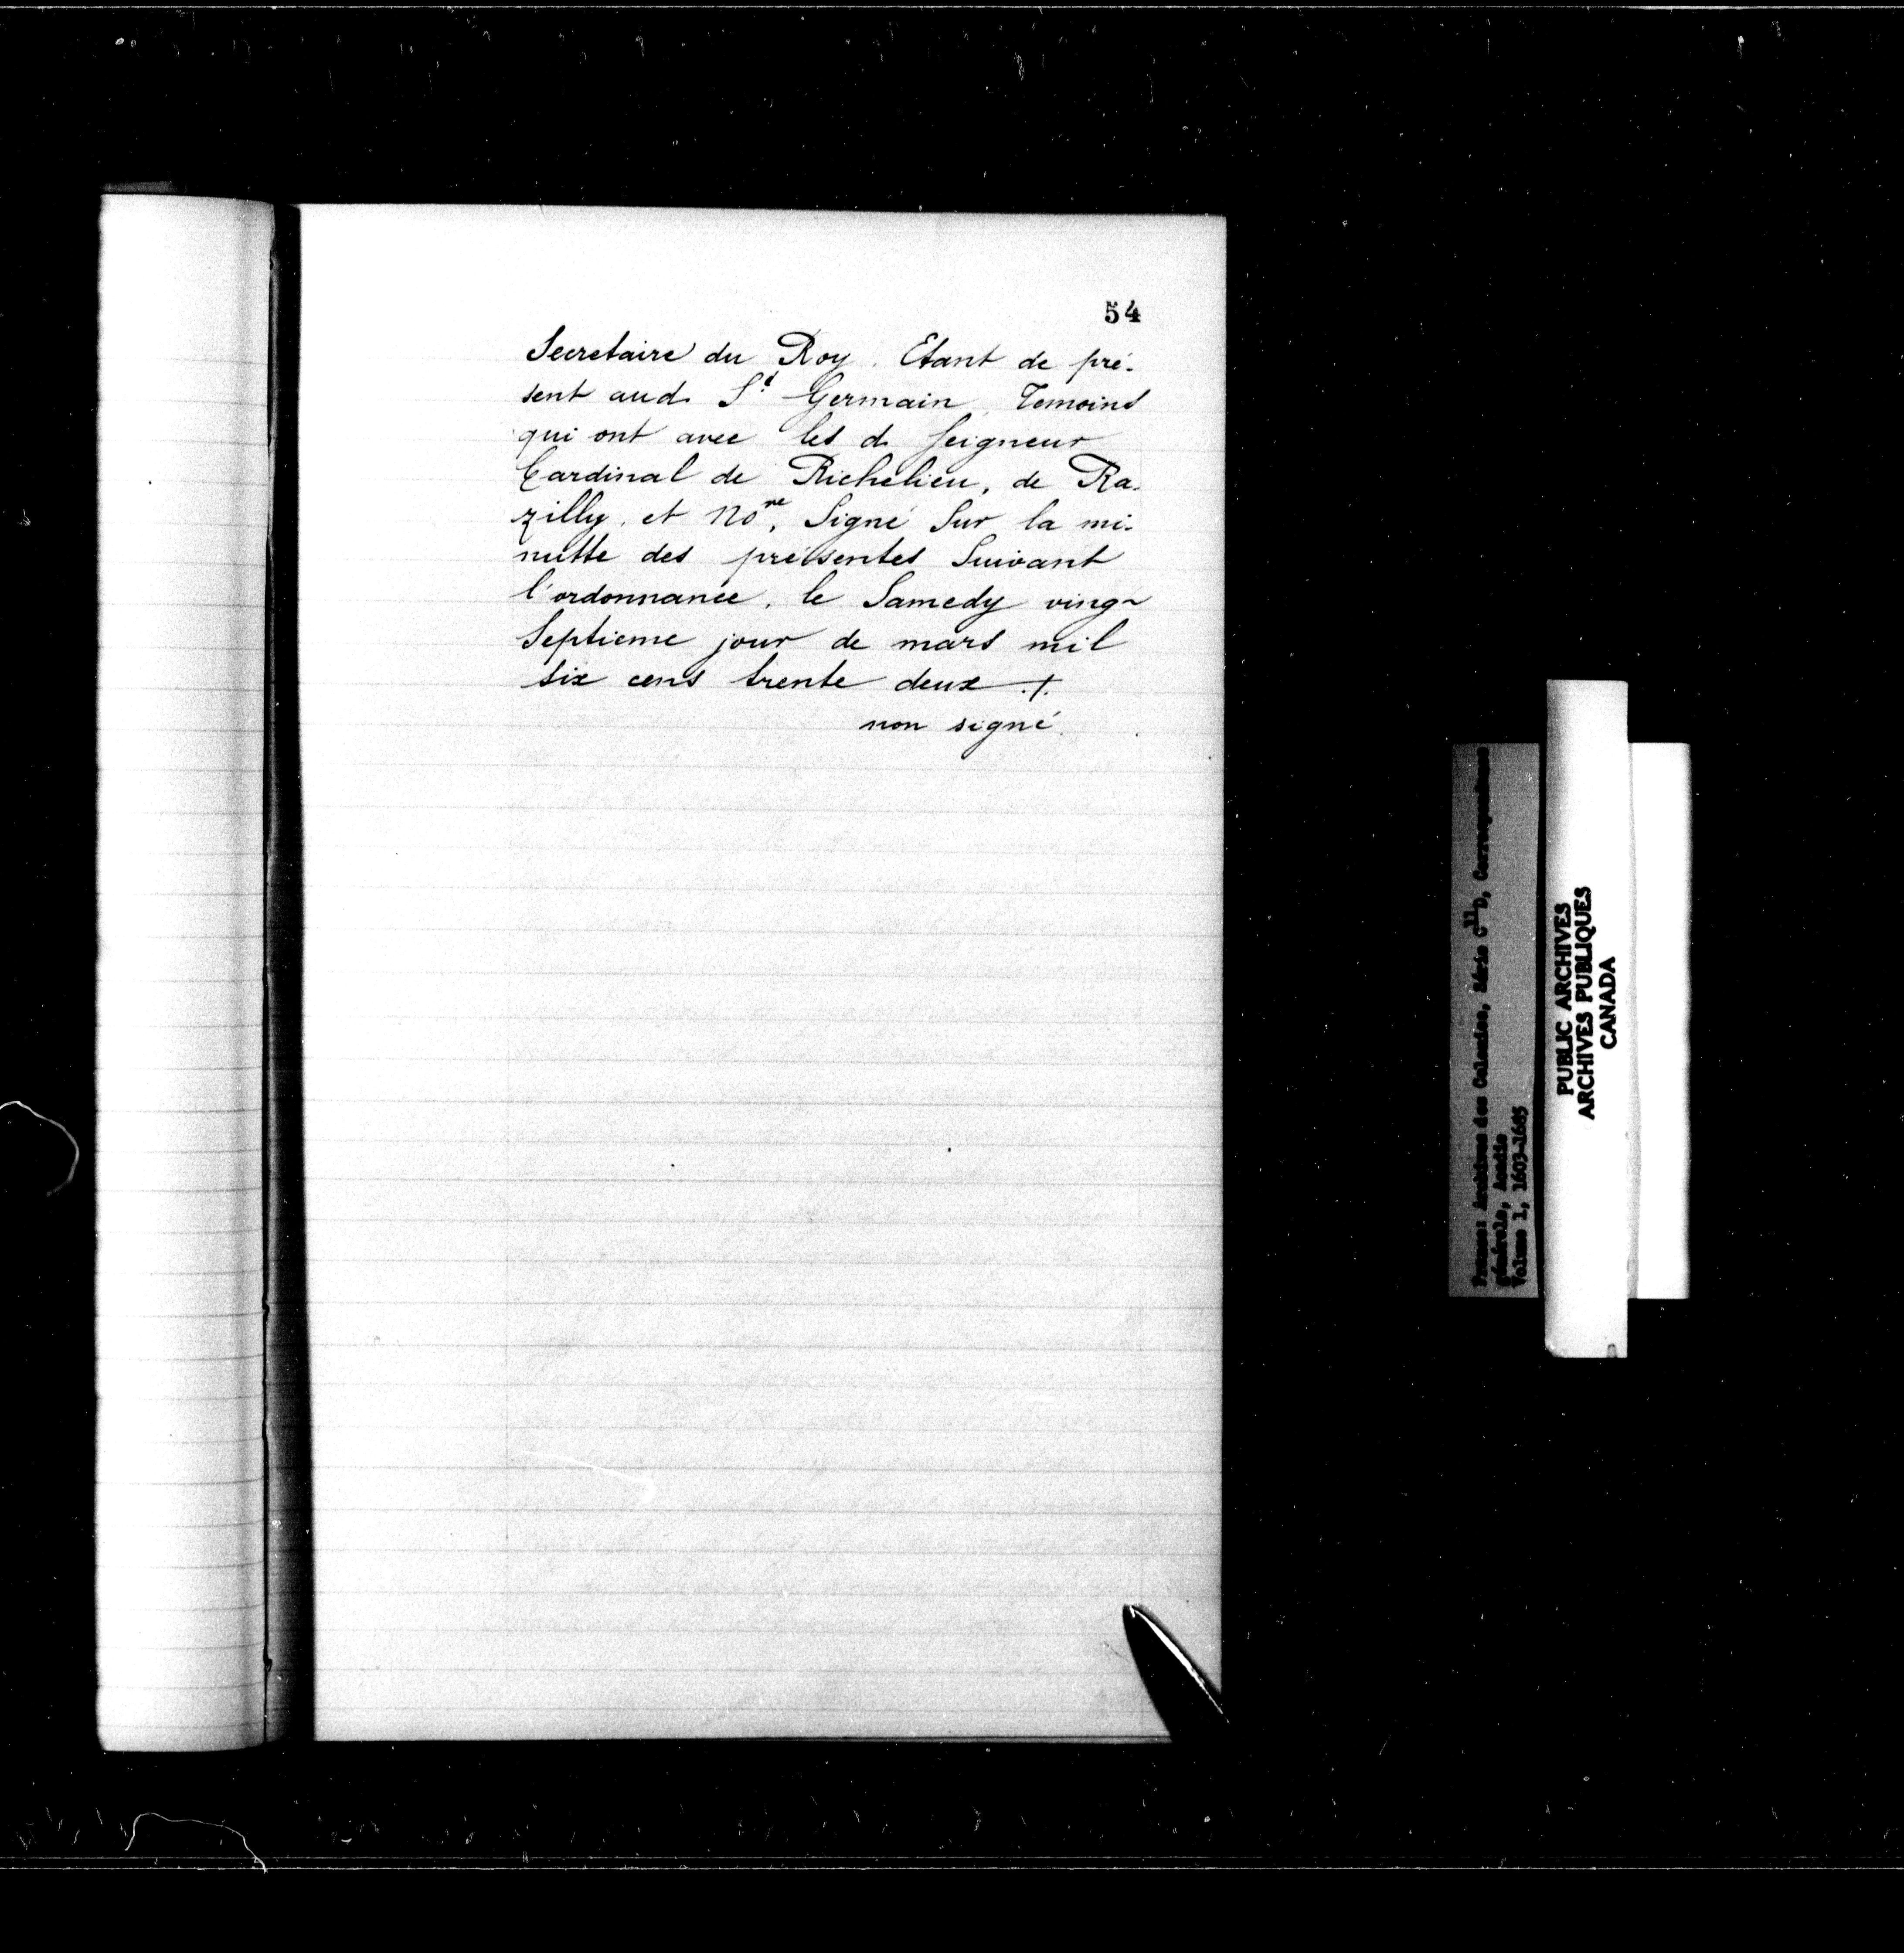 54
Secretaire du Roy. Etant de pré-
sent aud. St Germain, Temoins
qui ont avec les d. Seigneur
Cardinal de Richelieu, de Ra-
zilly, et Nore, Signé Sur la mi-
nutte des présentes Suivant
l'ordonnance, le Samedy ving~
Septieme jour de mars mil
six cens trente deux ./.
non signé.
France: Archives des Colonies, Série C11D, Correspondance
générale, Acadie
Volume 1, 1603-1685
PUBLIC ARCHIVES
ARCHIVES PUBLIQUES
CANADA